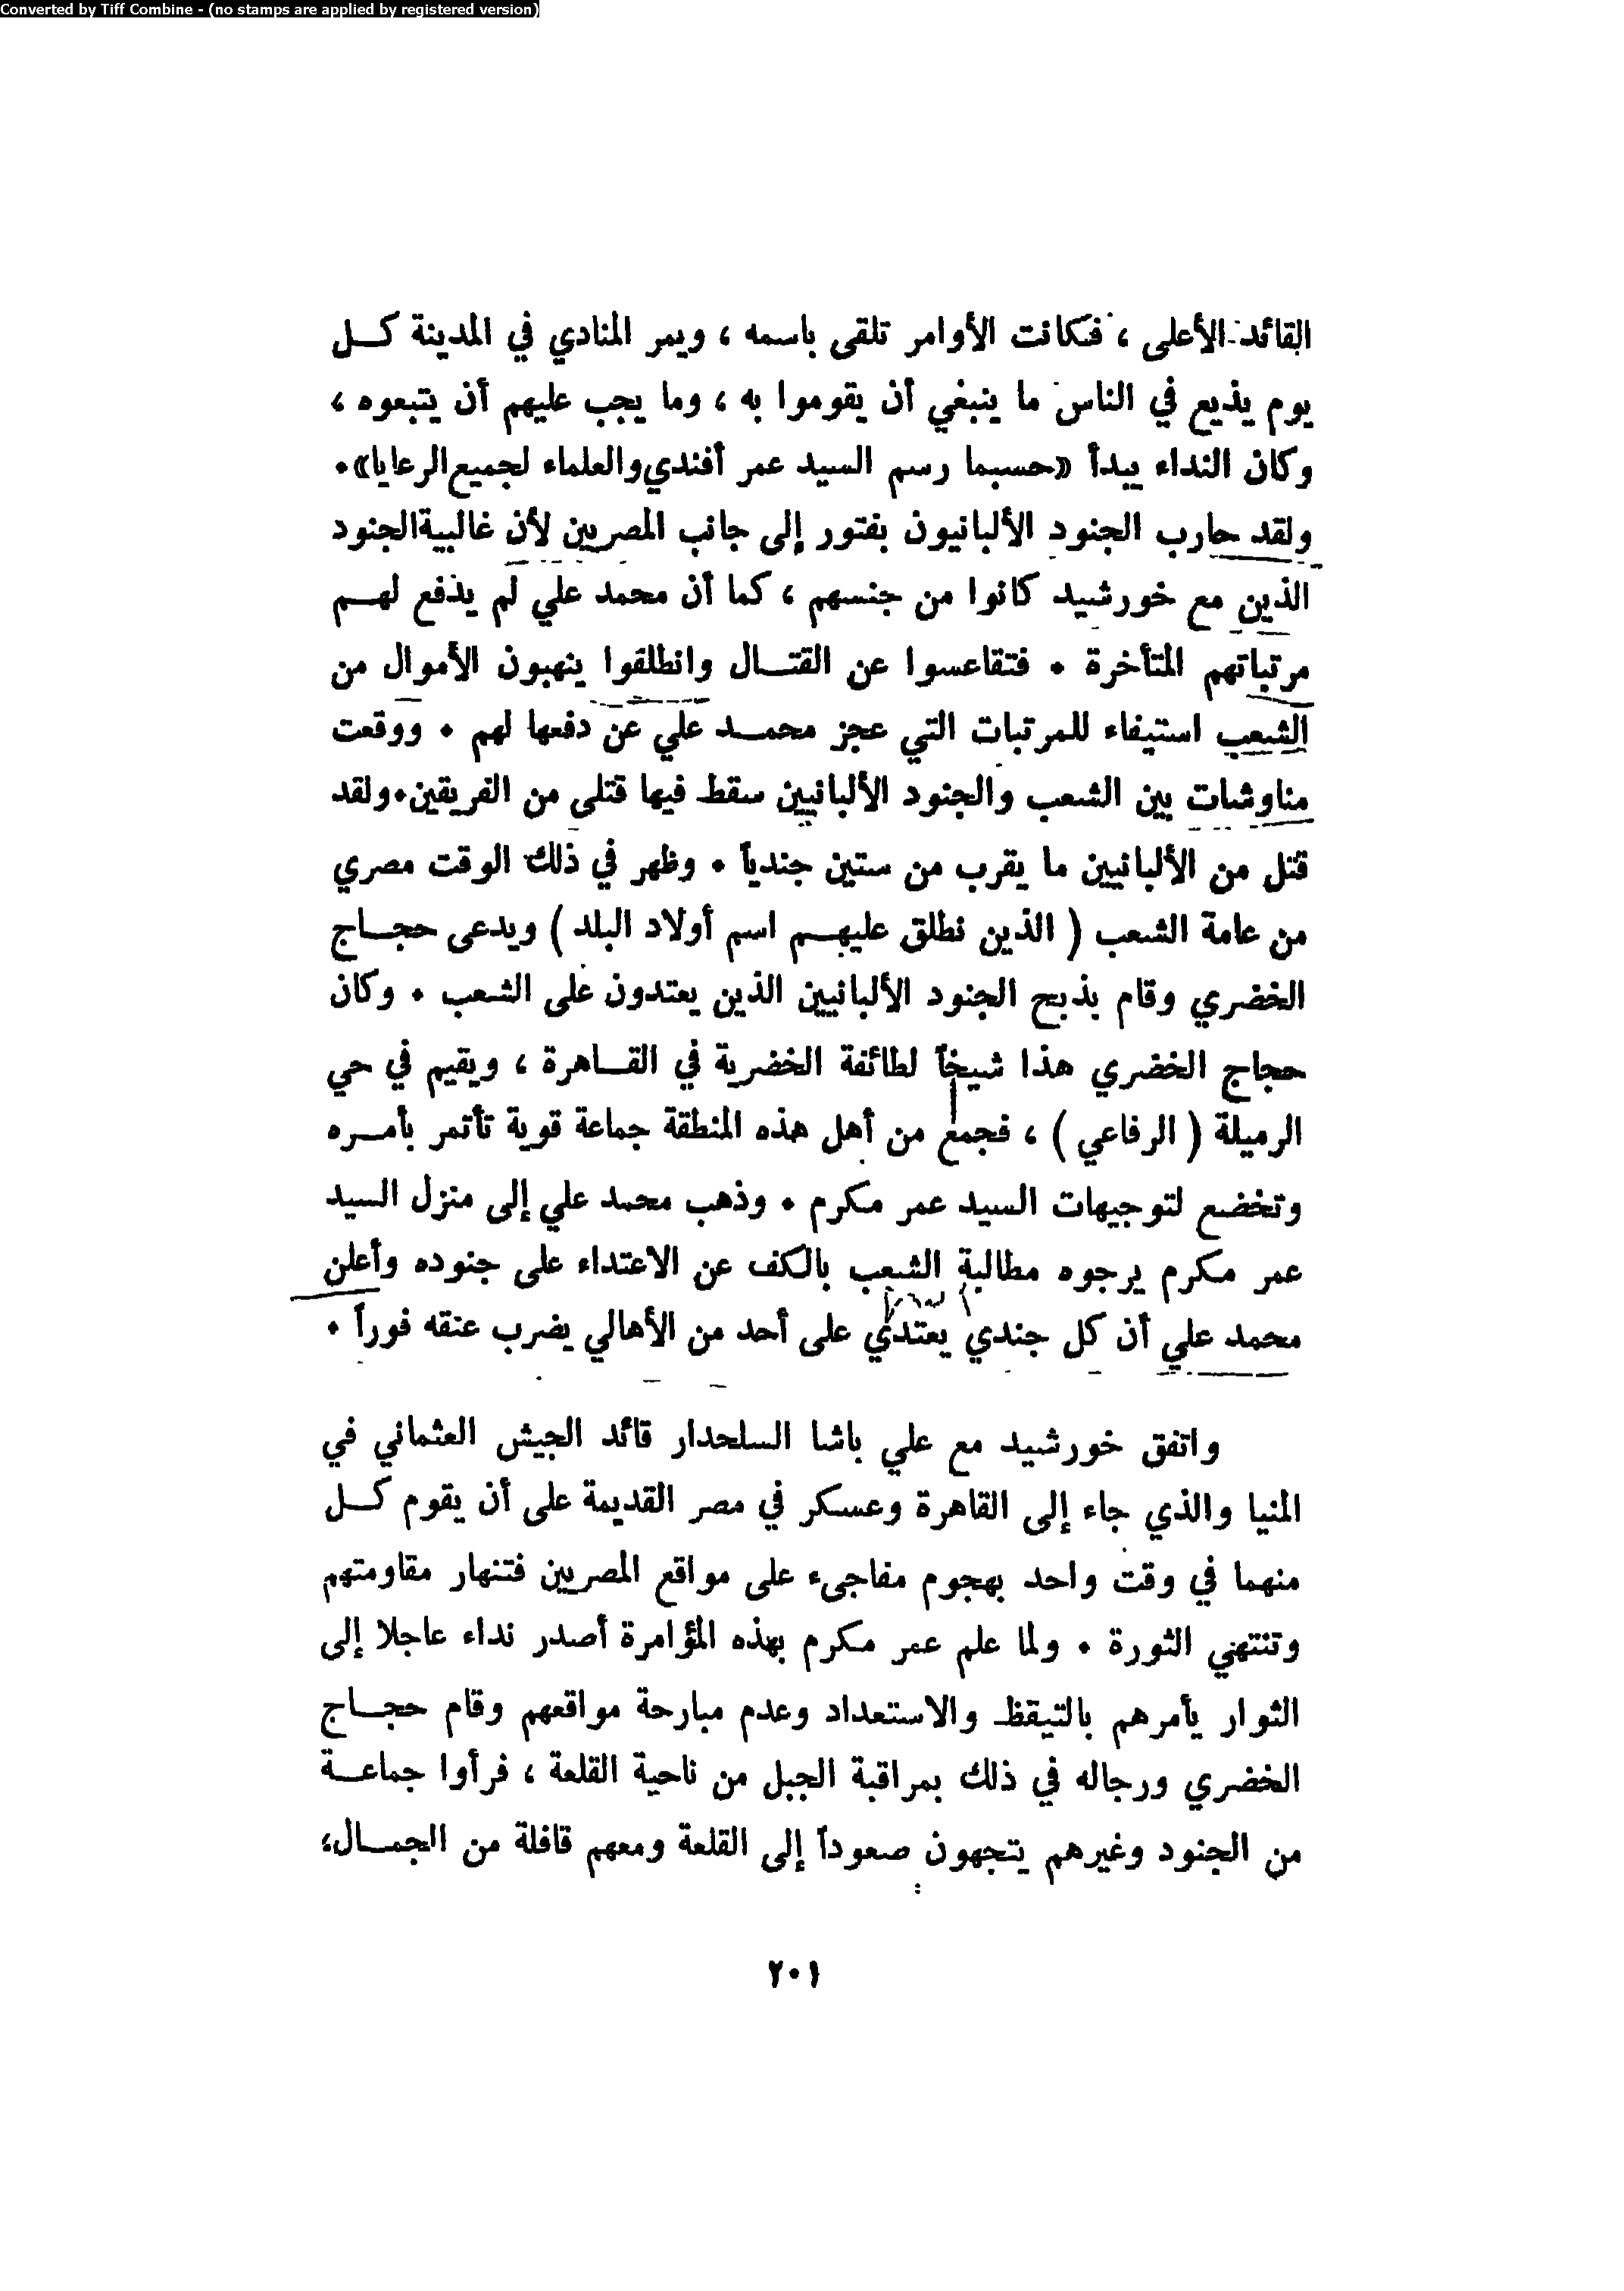 Converted by Tiff Combine - (no stamps are applied by registered version)
القائد الأعلى ، فكانت الأوامر تلقى باسمه ، ويمر المنادي في المدينة كـــل
يوم يذيع في الناس ما ينبغي أن يقوموا به ، وما يجب عليهم أن يتبعوه ،
وكان النداء يبدأ «حسبما رسم السيد عمر أفندي والعلماء لجميع الرعايا» .
ولقد حارب الجنود الألبانيون بفتور إلى جانب المصريين لأن غالبية الجنود
الذين مع خورشيد كانوا من جنسهم ، كما أن محمد علي لم يدفع لهـــم
مرتباتهم المتأخرة . فتقاعسوا عن القتـــال وانطلقوا ينهبون الأموال من
الشعب استيفاء للمرتبات التي عجز محمـــد علي عن دفعها لهم . ووقعت
مناوشات بين الشعب والجنود الألبانيين سقط فيها قتلى من الفريقين . ولقد
قتل من الألبانيين ما يقرب من ستين جندياً . وظهر في ذلك الوقت مصري
من عامة الشعب ( الذين نطلق عليهـــم اسم أولاد البلد ) ويدعى حجـــاج
الخضري وقام بذبح الجنود الألبانيين الذين يعتدون على الشعب . وكان
حجاج الخضري هذا شيخاً لطائفة الخضرية في القـــاهرة ، ويقيم في حي
الرميلة ( الرفاعي ) ، فجمع من أهل هذه المنطقة جماعة قوية تأتمر بأمـــره
وتخضع لتوجيهات السيد عمر مكرم . وذهب محمد علي إلى منزل السيد
عمر مكرم يرجوه مطالبة الشعب بالكف عن الاعتداء على جنوده وأعلن
محمد علي أن كل جندي يعتدي على أحد من الأهالي يضرب عنقه فوراً .
واتفق خورشيد مع علي باشا السلحدار قائد الجيش العثماني في
المنيا والذي جاء إلى القاهرة وعسكر في مصر القديمة على أن يقوم كـــل
منهما في وقت واحد بهجوم مفاجىء على مواقع المصريين فتنهار مقاومتهم
وتنتهي الثورة . ولما علم عمر مكرم بهذه المؤامرة أصدر نداء عاجلا إلى
الثوار يأمرهم بالتيقظ والاستعداد وعدم مبارحة مواقعهم وقام حجـــاج
الخضري ورجاله في ذلك بمراقبة الجبل من ناحية القلعة ، فرأوا جماعـــة
من الجنود وغيرهم يتجهون صعوداً إلى القلعة ومعهم قافلة من الجمـــال،
٢٠١